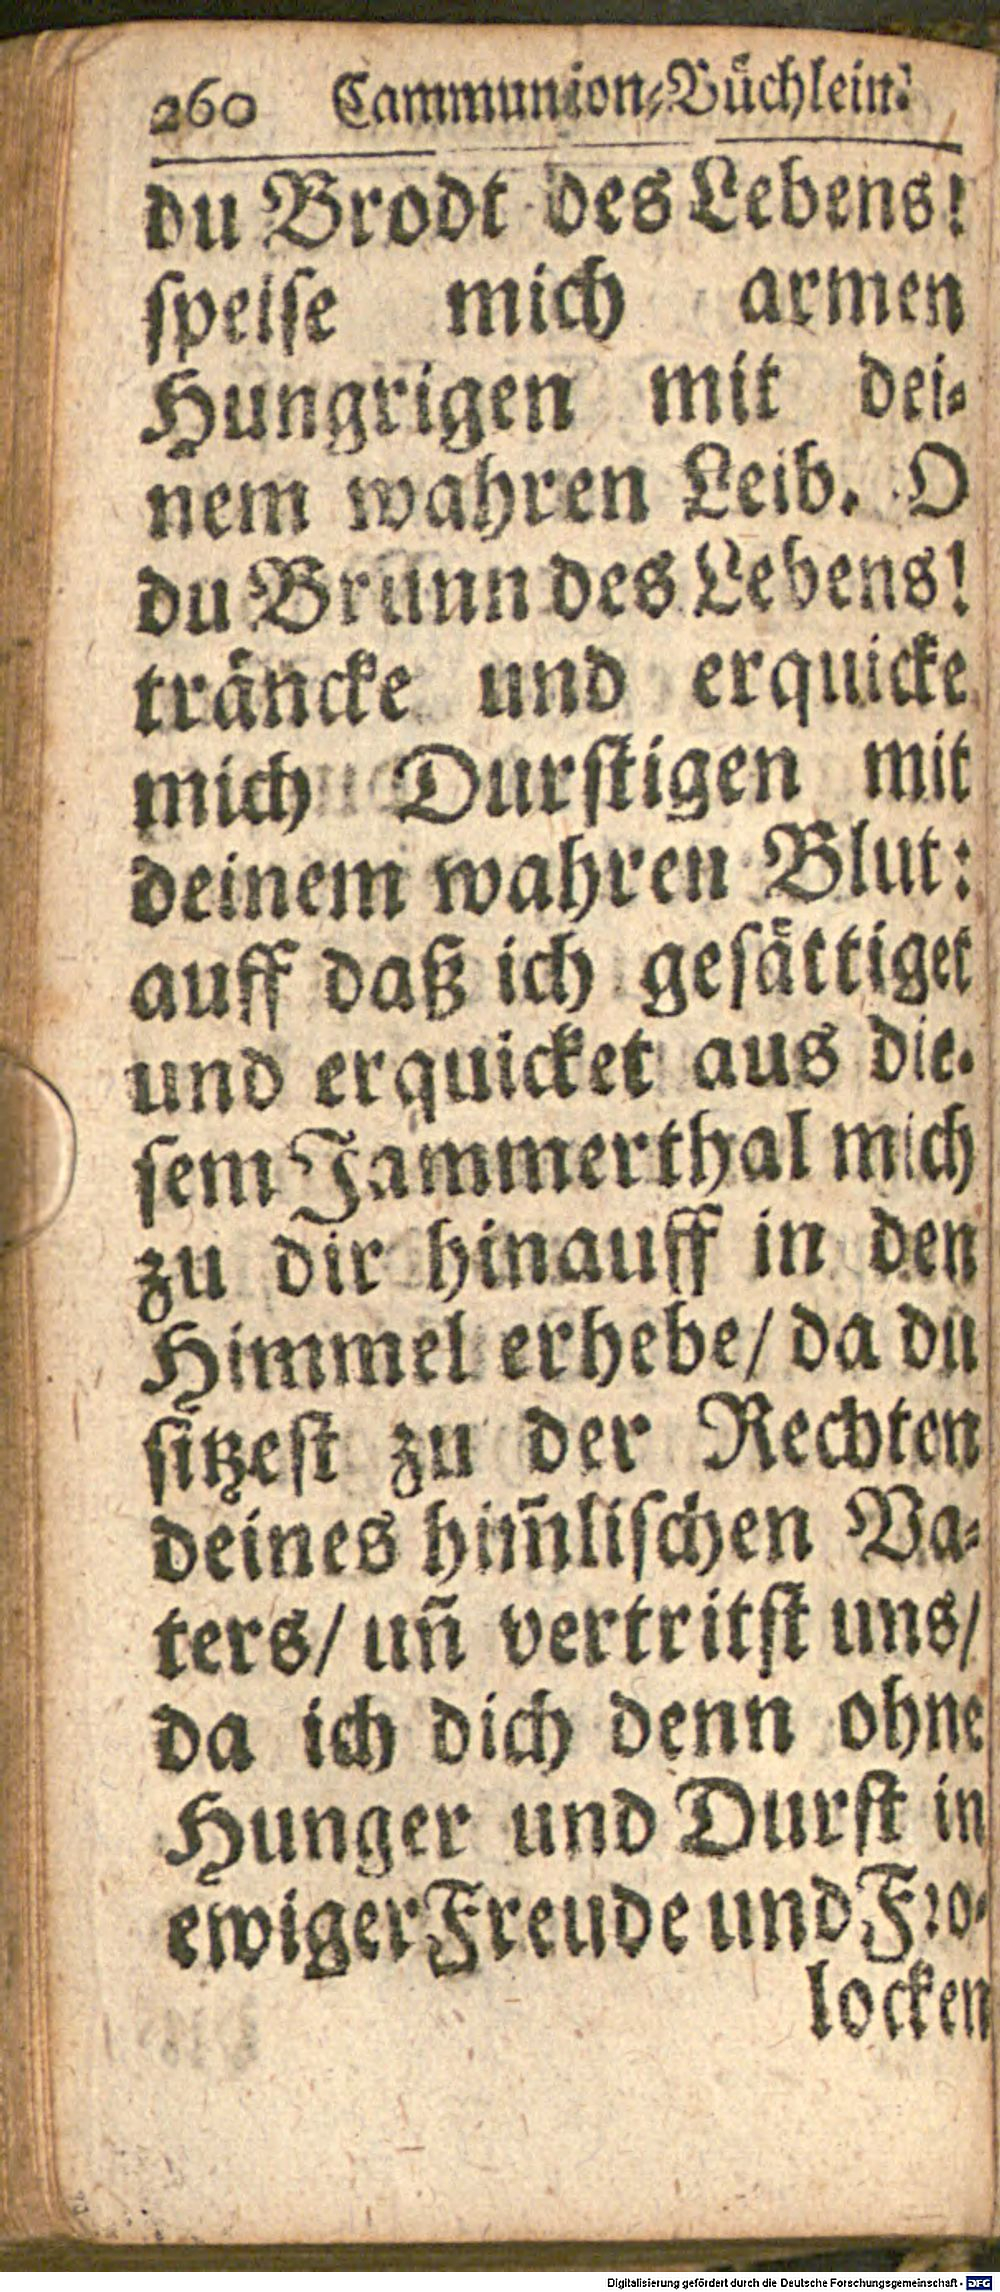 260 Cammunion-Büchlein.
du Brodt des Lebens!
speise mich armen
Hungrigen mit dei-
nem wahren Leib. O
du Brunn des Lebens!
träncke und erquicke
mich Durstigen mit
deinem wahren Blut:
auff daß ich gesättiget
und erquicket aus die-
sem Jammerthal mich
zu dir hinauff in den
Himmel erhebe/ da du
sitzest zu der Rechten
deines him̃lischen Va-
ters/ uñ vertritst uns/
da ich dich denn ohne
Hunger und Durst in
ewiger Freude und Fro-
locken
Digitalisierung gefördert durch die Deutsche Forschungsgemeinschaft - DFG